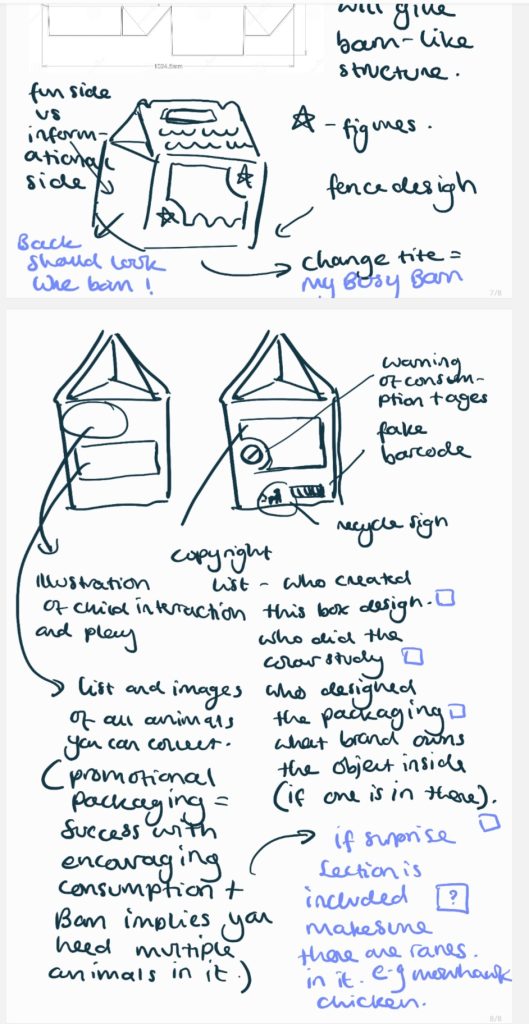 will give
barn-like
structure.
1024.5mm
fun side
vs
inform-
ational
side
☆ - figures.
fence design
Back
should look
like barn!
change title =
my Busy Barn
7/8
warning
of consum-
ption + ages
fake
barcode
recycle sign
copyright
list - who created
this box design.
who did the
colour study
who designed
the packaging
what brand owns
the object inside
(if one is in there).
illustration
of child interaction
and play
list and images
of all animals
you can collect.
(promotional
packaging =
success with
encouraging
consumption +
Barn implies you
need multiple
animals in it.)
if surprise
section is
included ?
makesure
there are rares.
in it. e-g mowhawk
chicken.
8/8